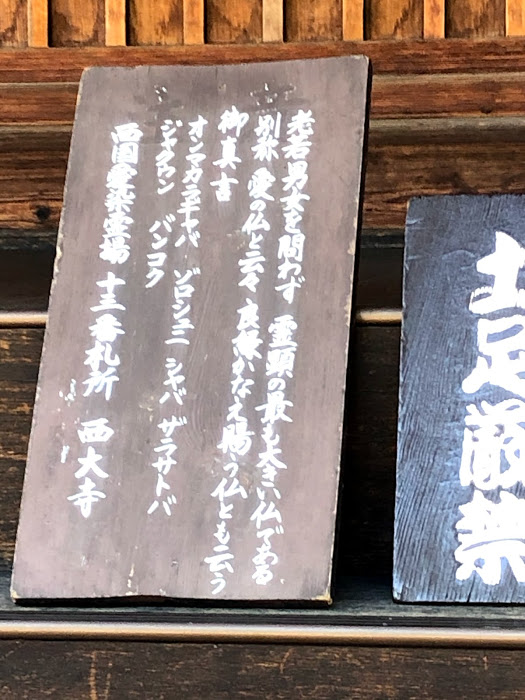 老若男女を問わず 霊顕の最も大きい仏である
別称 愛の仏と云々 良縁かなえ賜う仏とも云う
御真言
オンマカラギャバ ゾロシュニシャバ ザラサトバ
ジャクウン バンコク
西国愛染霊場 十三番札所 西大寺
土足厳禁